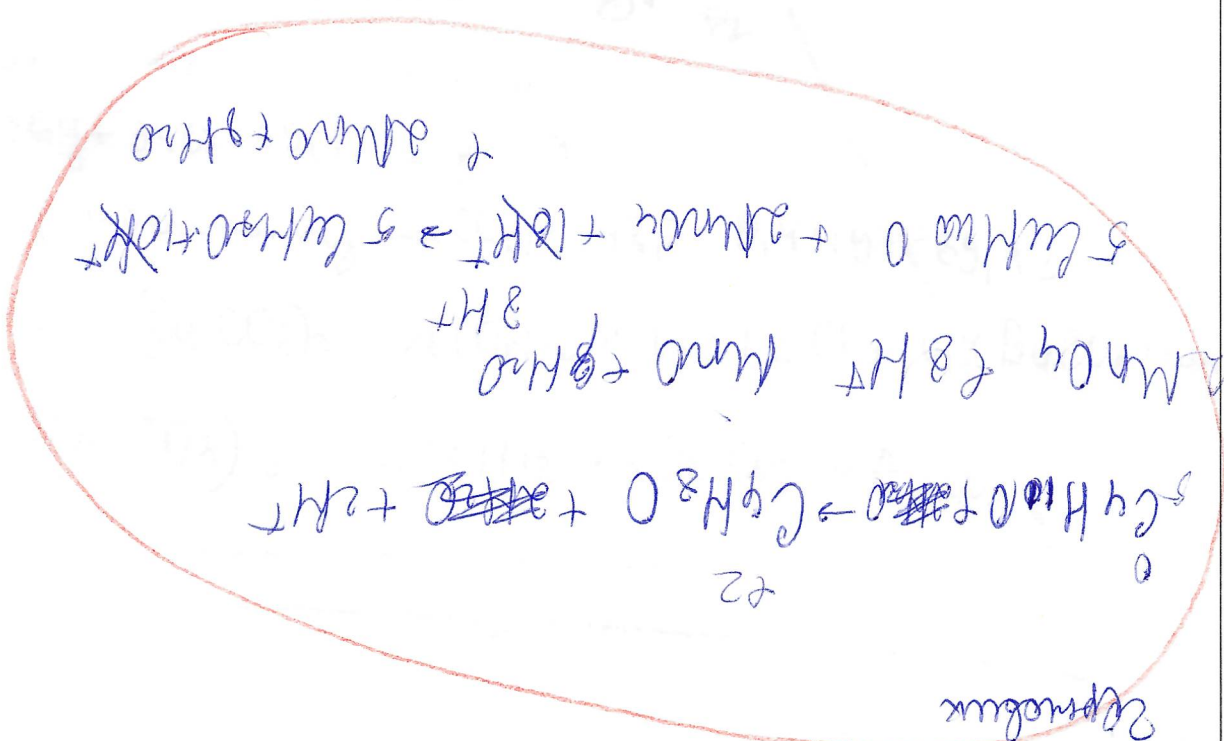 Черновик
0 +2
5 C4H10O + → C4H8O + + 2H+
2 MnO4 + 8H+ MnO + 8H2O
3H+
5 C4H10O + 2MnO4 + 10H+ → 5 C4H8O + 10H+
+ 2MnO + 8H2O